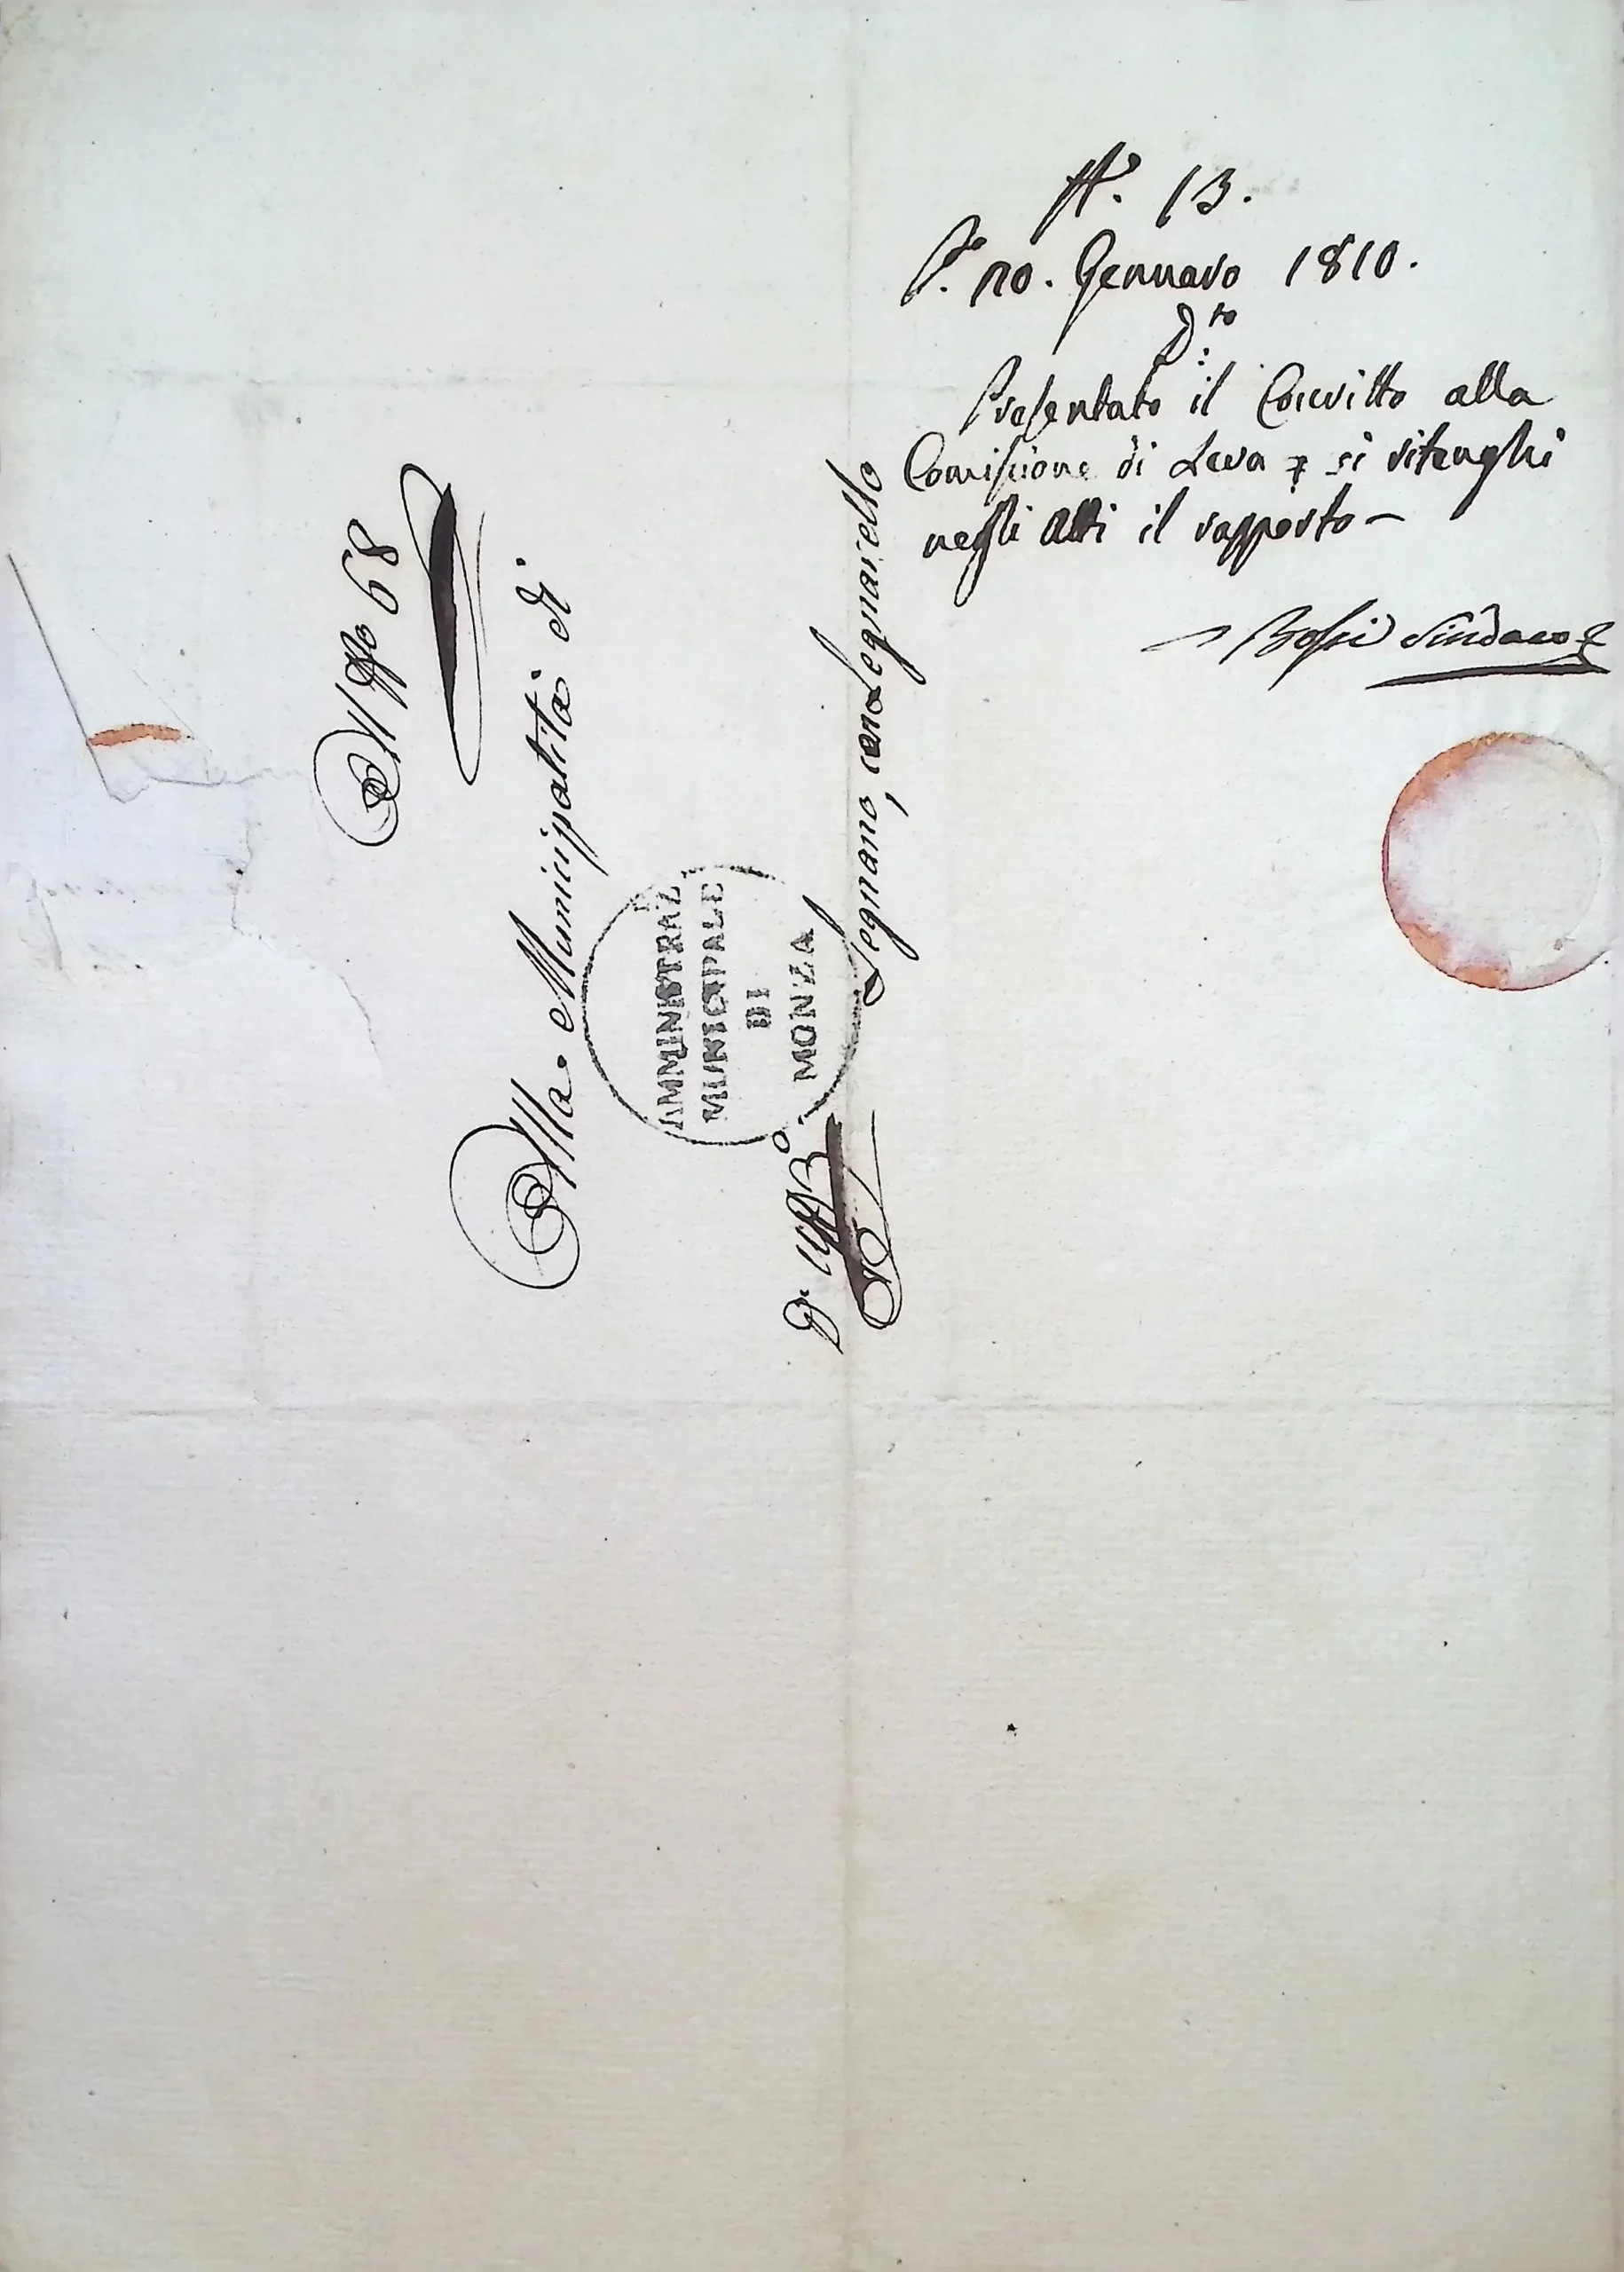 N.° 13.
P.° 20. Gennaro 1810.
D.to
Presentato il Coscritto alla
Comissione di Leva si ritenghi
negli Atti il rapporto —
Bossi Sindaco
N° 68
Alla Municipalità di
AMMINISTRAZ
MUNICIPALE
DI
MONZA
Legnano, con Legnarello
D' Uff°